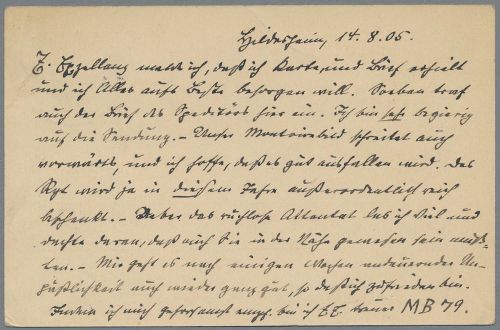 Hildesheim, 14.8.05.
E. Exzellenz melde ich, daß ich Karte und Brief erhielt
und ich Alles aufs Beste besorgen will. Soeben traf
auch der Brief des Spediteurs hier ein. Ich bin sehr begierig
auf die Sendung. – Unser Montoirebild schreitet auch
vorwärts, und ich hoffe, daß es gut ausfallen wird. Das
wird ja in diesem Jahre außerordentlich reich
beschenkt. – Ueber das ruchlose Attentat las ich viel und
dachte daran, daß auch Sie in der Nähe gewesen sein müß-
ten. – Mir geht es nach einigen Wochen andauernder Un-
päßlichkeit auch wieder ganz gut, so daß ich zufrieden bin.
Indem ich mich gehorsamst empf. bin ich EE. treuer MB 79.